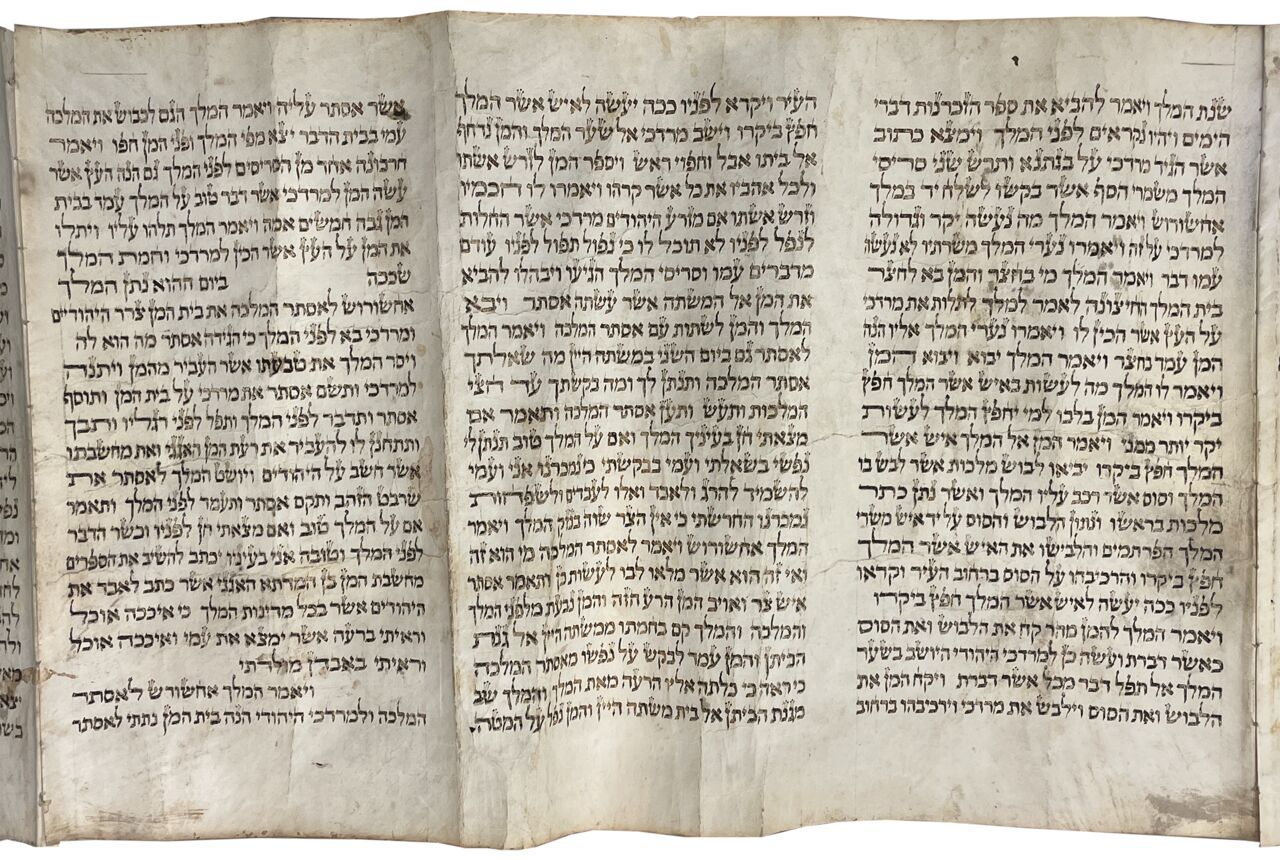 שנת המלך ויאמר להביא את ספר הזכרנות דברי
הימים ויהיו נקראים לפני המלך וימצא כתוב
אשר הגיד מרדכי על בגתנא ותרש שני סריסי
המלך משמרי הסף אשר בקשו לשלח יד במלך
אחשורוש ויאמר המלך מה נעשה יקר וגדולה
למרדכי על זה ויאמרו נערי המלך משרתיו לא נעשה
עמו דבר ויאמר המלך מי בחצר והמן בא לחצר
בית המלך החיצונה לאמר למלך לתלות את מרדכי
על העץ אשר הכין לו ויאמרו נערי המלך אליו הנה
המן עמד בחצר ויאמר המלך יבוא ויבוא המן
ויאמר לו המלך מה לעשות באיש אשר המלך חפץ
ביקרו ויאמר המן בלבו למי יחפץ המלך לעשות
יקר יותר ממני ויאמר המן אל המלך איש אשר
המלך חפץ ביקרו יביאו לבוש מלכות אשר לבש בו
המלך וסוס אשר רכב עליו המלך ואשר נתן כתר
מלכות בראשו ונתון הלבוש והסוס על יד איש משרי
המלך הפרתמים והלבישו את האיש אשר המלך
חפץ ביקרו והרכיבהו על הסוס ברחוב העיר וקראו
לפניו ככה יעשה לאיש אשר המלך חפץ ביקרו
ויאמר המלך להמן מהר קח את הלבוש ואת הסוס
כאשר דברת ועשה כן למרדכי היהודי היושב בשער
המלך אל תפל דבר מכל אשר דברת ויקח המן את
הלבוש ואת הסוס וילבש את מרדכי וירכיבהו ברחוב
העיר ויקרא לפניו ככה יעשה לאיש אשר המלך
חפץ ביקרו וישב מרדכי אל שער המלך והמן נדחף
אל ביתו אבל וחפוי ראש ויספר המן לזרש אשתו
ולכל אהביו את כל אשר קרהו ויאמרו לו חכמיו
וזרש אשתו אם מזרע היהודים מרדכי אשר החלות
לנפל לפניו לא תוכל לו כי נפול תפול לפניו עודם
מדברים עמו וסריסי המלך הגיעו ויבהלו להביא
את המן אל המשתה אשר עשתה אסתר ויבא
המלך והמן לשתות עם אסתר המלכה ויאמר המלך
לאסתר גם ביום השני במשתה היין מה שאלתך
אסתר המלכה ותנתן לך ומה בקשתך עד חצי
המלכות ותעש ותען אסתר המלכה ותאמר אם
מצאתי חן בעיניך המלך ואם על המלך טוב תנתן לי
נפשי בשאלתי ועמי בבקשתי כי נמכרנו אני ועמי
להשמיד להרג ולאבד ואלו לעבדים ולשפחות
נמכרנו החרשתי כי אין הצר שוה בנזק המלך ויאמר
המלך אחשורוש ויאמר לאסתר המלכה מי הוא זה
ואי זה הוא אשר מלאו לבו לעשות כן ותאמר אסתר
איש צר ואויב המן הרע הזה והמן נבעת מלפני המלך
והמלכה והמלך קם בחמתו ממשתה היין אל גנת
הביתן והמן עמד לבקש על נפשו מאסתר המלכה
כי ראה כי כלתה אליו הרעה מאת המלך והמלך שב
מגנת הביתן אל בית משתה היין והמן נפל על המטה
אשר אסתר עליה ויאמר המלך הגם לכבוש את המלכה
עמי בבית הדבר יצא מפי המלך ופני המן חפו ויאמר
חרבונה אחד מן הסריסים לפני המלך גם הנה העץ אשר
עשה המן למרדכי אשר דבר טוב על המלך עמד בבית
המן גבה חמשים אמה ויאמר המלך תלהו עליו ויתלו
את המן על העץ אשר הכין למרדכי וחמת המלך
שככה ביום ההוא נתן המלך
אחשורוש לאסתר המלכה את בית המן צרר היהודיים
ומרדכי בא לפני המלך כי הגידה אסתר מה הוא לה
ויסר המלך את טבעתו אשר העביר מהמן ויתנה
למרדכי ותשם אסתר את מרדכי על בית המן ותוסף
אסתר ותדבר לפני המלך ותפל לפני רגליו ותבך
ותתחנן לו להעביר את רעת המן האגגי ואת מחשבתו
אשר חשב על היהודים ויושט המלך לאסתר את
שרבט הזהב ותקם אסתר ותעמד לפני המלך ותאמר
אם על המלך טוב ואם מצאתי חן לפניו וכשר הדבר
לפני המלך וטובה אני בעיניו יכתב להשיב את הספרים
מחשבת המן בן המדתא האגגי אשר כתב לאבד את
היהודים אשר בכל מדינות המלך כי איככה אוכל
וראיתי ברעה אשר ימצא את עמי ואיככה אוכל
וראיתי באבדן מולדתי
ויאמר המלך אחשורוש לאסתר
המלכה ולמרדכי היהודי הנה בית המן נתתי לאסתר